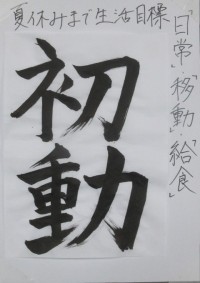 夏休みまで生活目標
「日常」・「移動」・「給食」
初動